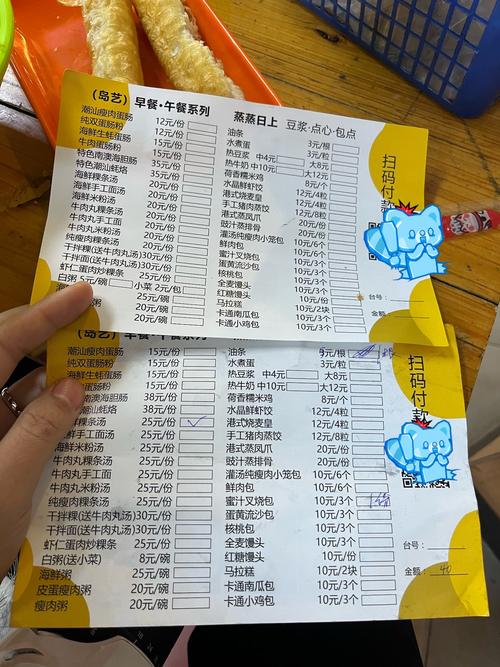 （岛艺） 早餐·午餐系列
潮汕瘦肉蛋肠 12元/份
纯双蛋肠粉 12元/份
海鲜生蚝蛋肠 15元/份
牛肉蛋肠粉 15元/份
特色南澳海胆肠 35元/份
特色潮汕蚝烙 35元/份
海鲜粿条汤 20元/份
海鲜手工面汤 20元/份
海鲜米粉汤 20元/份
牛肉丸粿条汤 20元/份
牛肉丸手工面 20元/份
牛肉丸米粉汤 20元/份
纯瘦肉粿条汤 20元/份
干拌粿(送牛肉丸汤)30元/份
干拌面(送牛肉丸汤)30元/份
虾仁蛋肉炒粿条 20元/份
白粥 5元/碗 小菜 2元/包
25元/碗
20元/碗
20元/碗
蒸蒸日上 豆浆·点心·包点
油条 3元/根
水煮蛋 3元/粒
热豆浆 中4元 大8元
热牛奶 中10元 大12元
荷香糯米鸡 8元/个
水晶鲜虾饺 12元/4粒
港式烧麦皇 12元/4粒
手工猪肉蒸饺 12元/8粒
港式蒸凤爪 20元/份
豉汁蒸排骨 20元/份
灌汤纯瘦肉小笼包 10元/6个
鲜肉包 10元/6个
蜜汁叉烧包 10元/3个
蛋黄流沙包 10元/3个
核桃包 10元/3个
全麦馒头 10元/3个
红糖馒头 10元/份
马拉糕 10元/2块
卡通南瓜包 10元/3个
卡通小鸡包 10元/3个
扫码付款
台号：
金额：
（岛艺）
潮汕瘦肉蛋肠 15元/份
纯双蛋肠粉 15元/份
海鲜生蚝蛋肠 15元/份
蛋肠粉 15元/份
南澳海胆肠 38元/份
潮汕蚝烙 38元/份
粿条汤 25元/份 ✓
鲜手工面汤 25元/份
海鲜米粉汤 25元/份
牛肉丸粿条汤 25元/份
牛肉丸手工面 25元/份
牛肉丸米粉汤 25元/份
纯瘦肉粿条汤 25元/份
干拌粿(送牛肉丸汤)30元/份
干拌面(送牛肉丸汤)30元/份
虾仁蛋肉炒粿条 25元/份
白粥(送小菜) 8元/碗
海鲜粥 25元/碗
皮蛋瘦肉粥 20元/碗
瘦肉粥 20元/碗
油条 5元/根
水煮蛋 3元/粒
热豆浆 中4元 大8元
热牛奶 中10元 大12元
荷香糯米鸡 8元/个
水晶鲜虾饺 12元/4粒
港式烧麦皇 12元/4粒
手工猪肉蒸饺 12元/8粒
港式蒸凤爪 20元/份
豉汁蒸排骨 20元/份
灌汤纯瘦肉小笼包 10元/6个
鲜肉包 10元/6个
蜜汁叉烧包 10元/3个
蛋黄流沙包 10元/3个
核桃包 10元/3个
全麦馒头 10元/3个
红糖馒头 10元/份
马拉糕 10元/2块
卡通南瓜包 10元/3个
卡通小鸡包 10元/3个
扫码付款
台号：
金额： 40